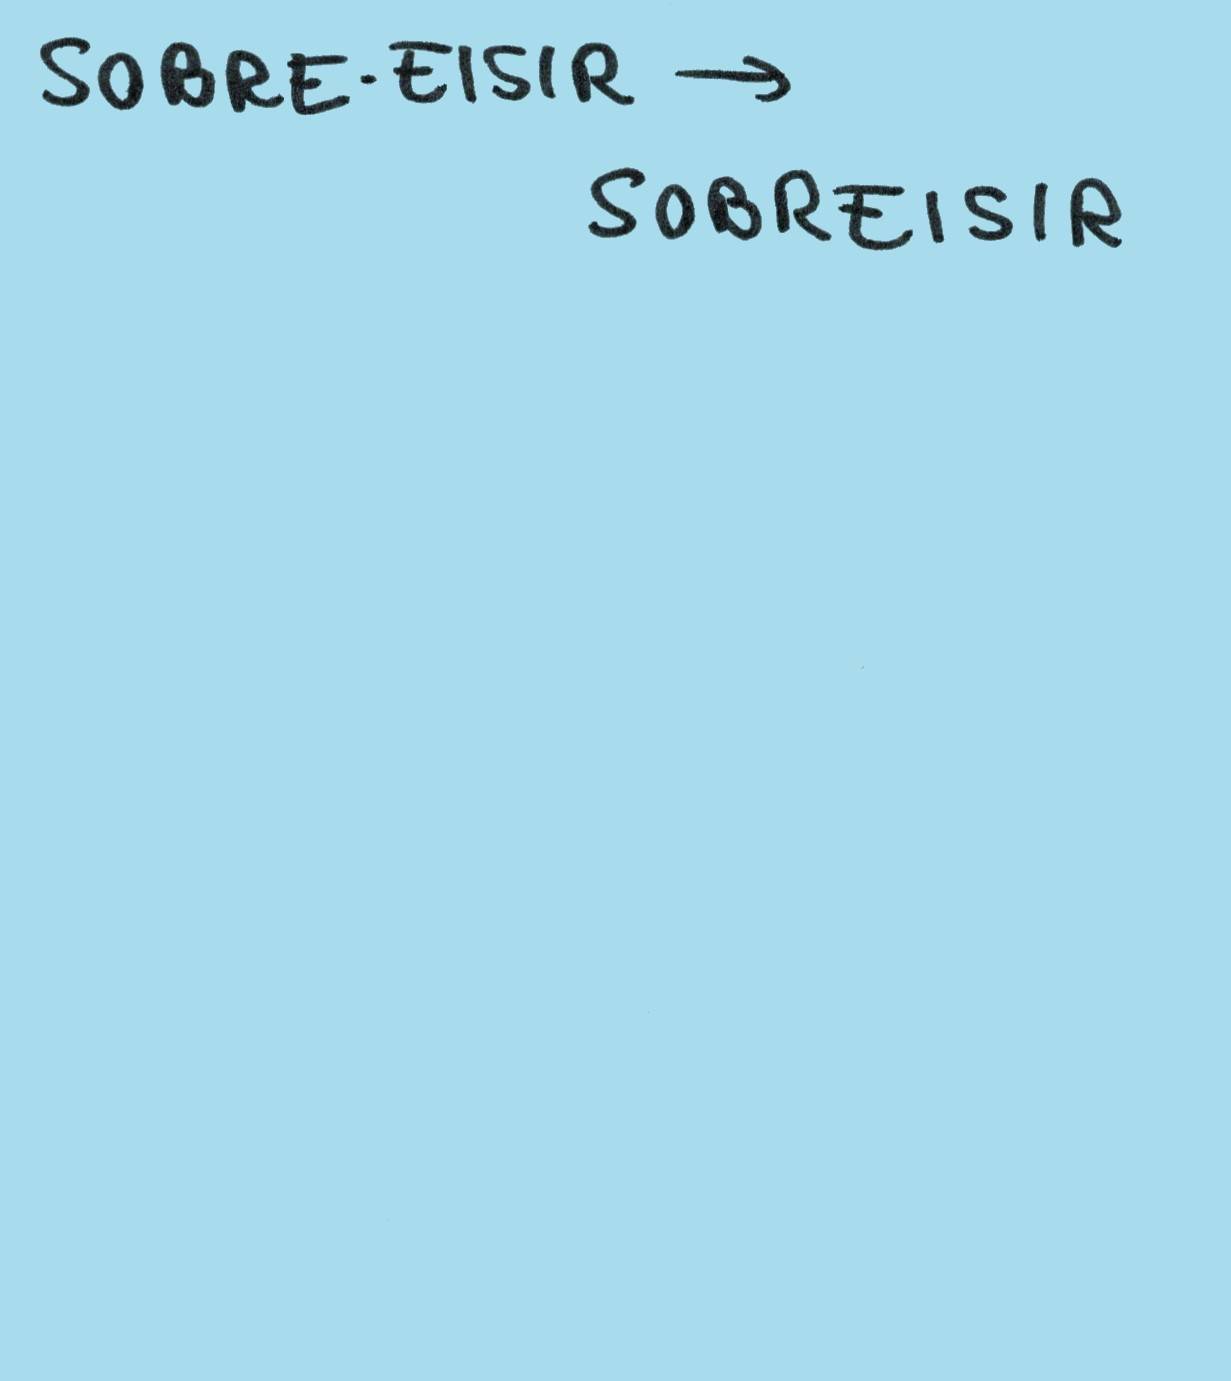 SOBRE-EISIR →
SOBREISIR